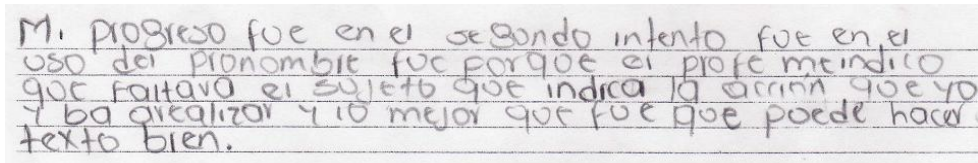 Mi progreso fue en el segundo intento fue en el
uso del pronombre fue porque el profe meindico
que faltava el sujeto que indica la acción que yo
y ba arealizar y lo mejor que fue que puede hacer
texto bien.